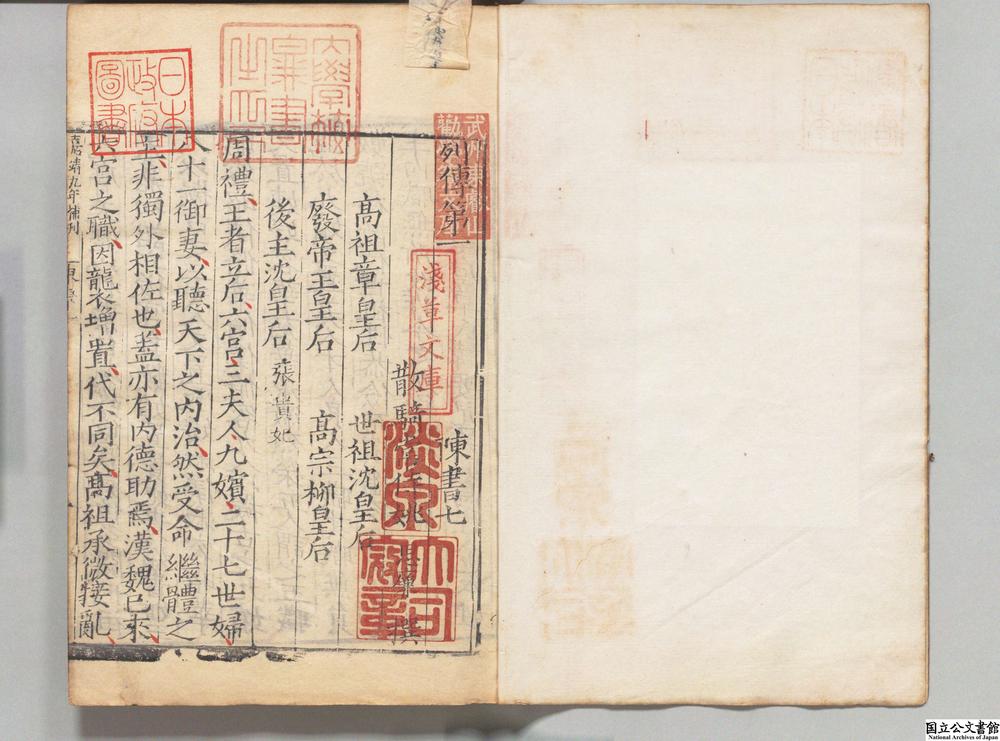 列傳第一
陳書七
散騎常侍姚思廉撰
高祖章皇后
世祖沈皇后
廢帝王皇后
高宗柳皇后
後主沈皇后
張貴妃
周禮王者立后六宮三夫人九嬪二十七世婦
八十一御妻以聽天下之內治然受命繼體之
主非獨外相佐也蓋亦有內德助焉漢魏已來
六宮之職因襲增置代不同矣高祖承微接亂
嘉靖九年補刊
淺草文庫
日本
政府
圖書
國立公文書館
National Archives of Japan